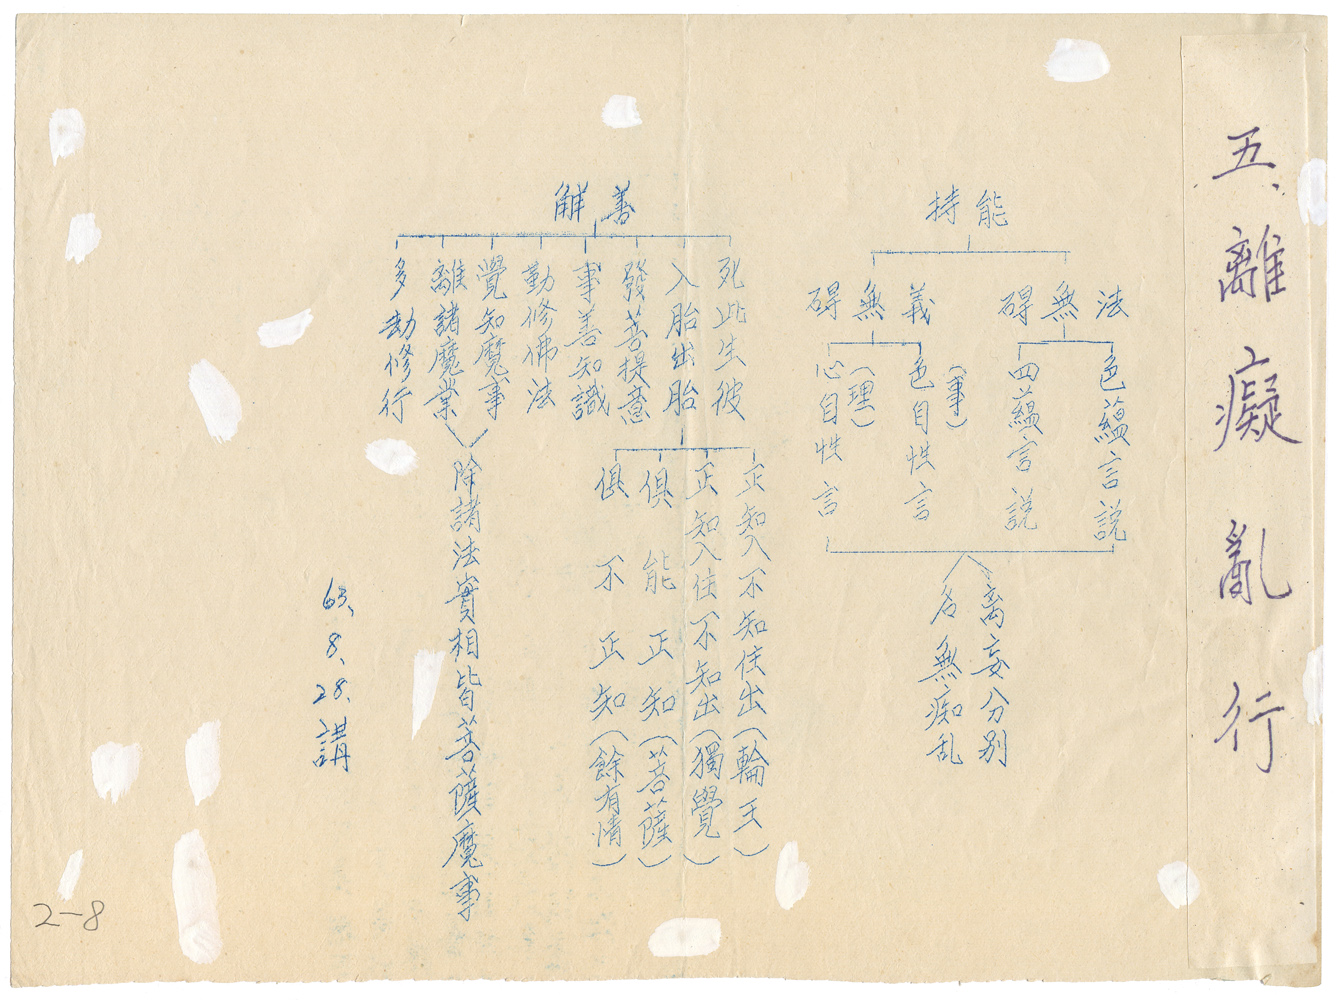 五、離癡亂行
能持
法無碍
色蘊言說
四蘊言說
義無碍
(事)
色自性言
(理)
心自性言
离妄分别
名無痴乱
善解
死此生彼
入胎出胎
正知入不知住出(輪王)
正知入住不知出(獨覺)
俱能正知(菩薩)
俱不正知(餘有情)
發菩提意
事善知識
勤修佛法
覺知魔事
離諸魔業
除諸法實相皆菩薩魔事
多劫修行
63、8、28、講
2-8